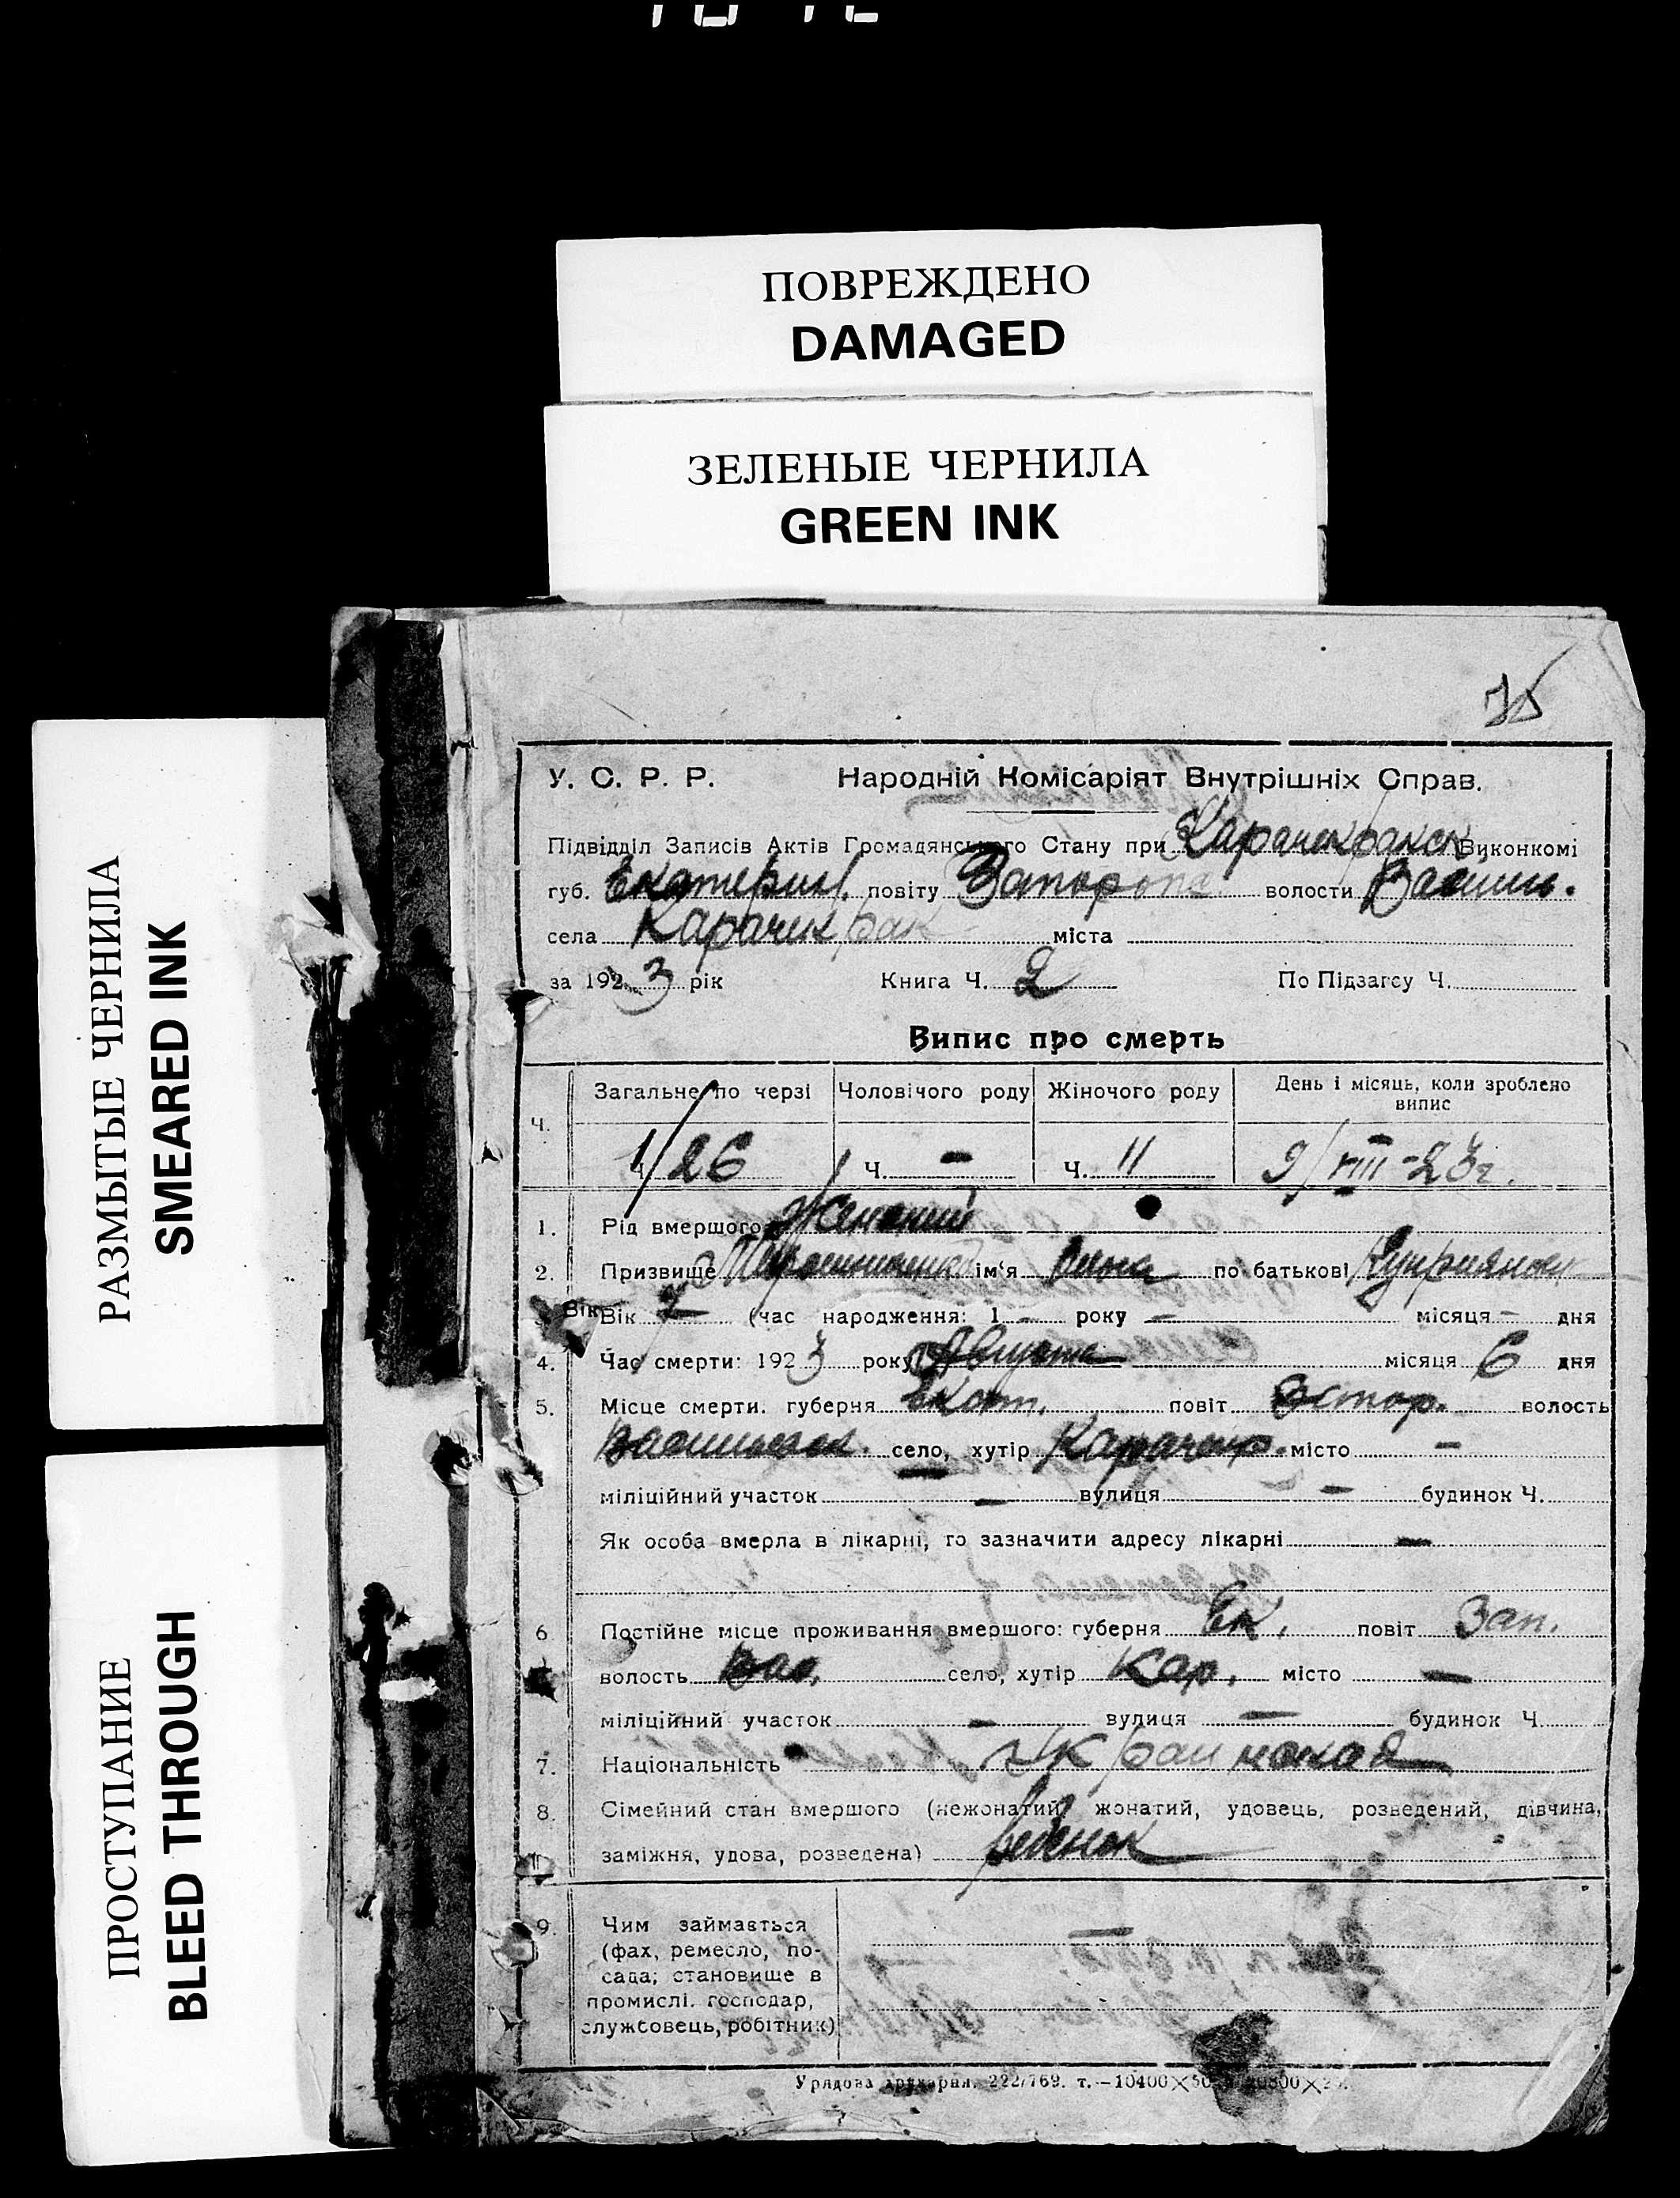 ПОВРЕЖДЕНО
DAMAGED
ЗЕЛЕНЫЕ ЧЕРНИЛА
GREEN INK
РАЗМЫТЫЕ ЧЕРНИЛА
SMEARED INK
ПРОСТУПАНИЕ
BLEED THROUGH
У. С. Р. Р. Народній Комісаріят Внутрішніх Справ.
Підвідділ Записів Актів Громадянського Стану при Карачекракск Виконкомі
губ. Екатерин. повіту Запорож волости Васил.
села Карачекрак міста
за 1923 рік Книга Ч. 2 По Підзагсу Ч.
Випис про смерть
Ч. Загальне по черзі Чоловічого роду Жіночого роду День і місяць, коли зроблено
випис
Ч. 26 Ч. — Ч. 11 9/VIII-23г.
1. Рід вмершого Женский
2. Призвище ім'я по батькові
Вік Вік (час народження: 1 — року — місяця — дня
4. Час смерти: 1923 року Августа місяця 6 дня
5. Місце смерти. губерня Екат. повіт Запор. волость
село, хутір Карачекр. місто —
міліційний участок — вулиця — будинок Ч.
Як особа вмерла в лікарні, то зазначити адресу лікарні —
6 Постійне місце проживання вмершого: губерня Ек. повіт Зап.
волость Вас. село, хутір Кар. місто —
міліційний участок — вулиця — будинок Ч.
7. Національність Украинская
8. Сімейний стан вмершого (нежонатий, жонатий, удовець, розведений, дівчина,
заміжня, удова, розведена) ребенок
9. Чим займається —
(фах, ремесло, по-
сада; становище в
промислі. господар,
службовець, робітник)
Урядова друкарня. 222/769. т.—10400×50